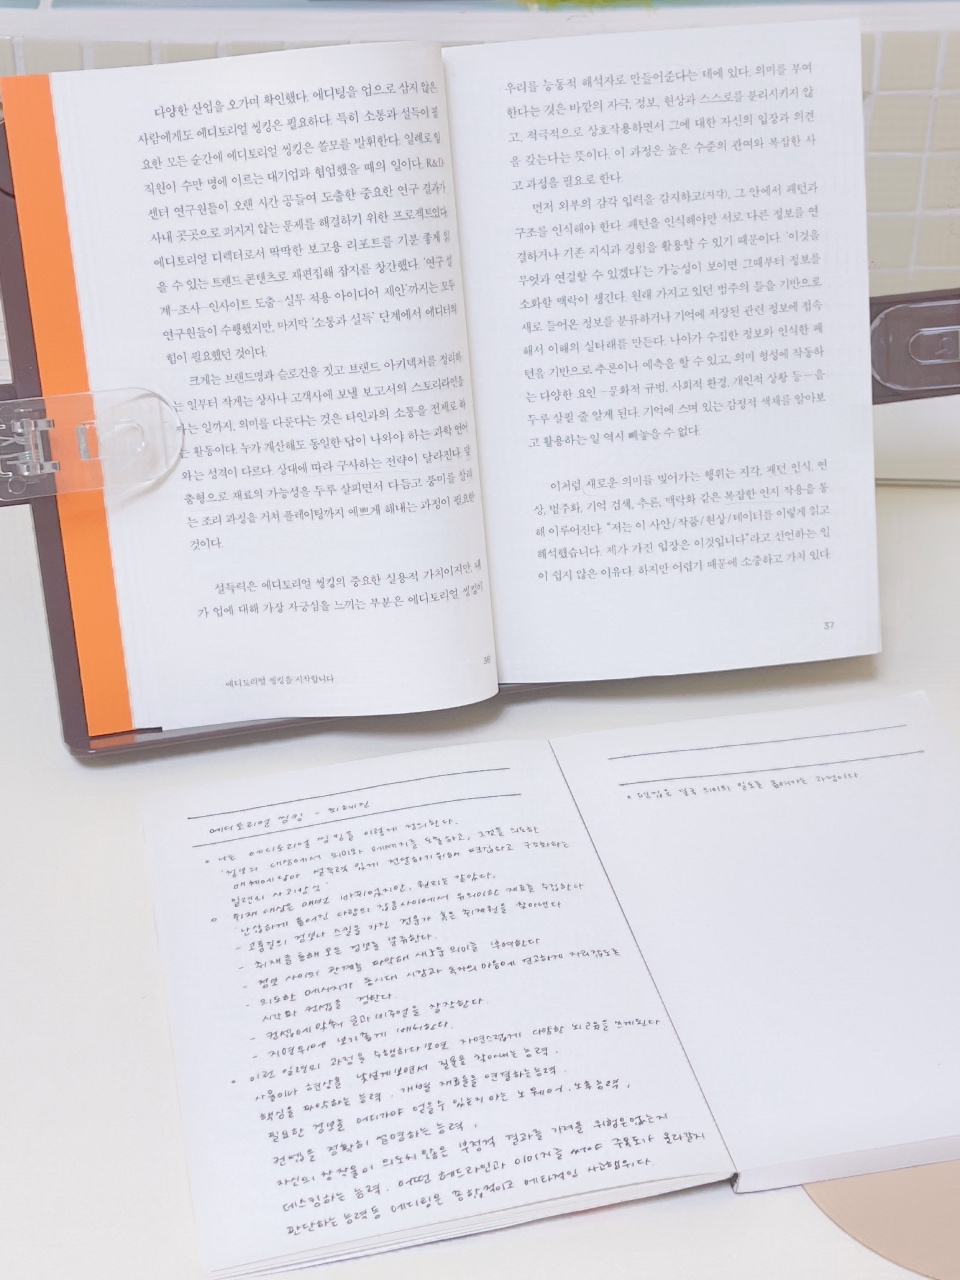 다양한 산업을 오가며 확인했다. 에디팅을 업으로 삼지 않은
사람에게도 에디토리얼 씽킹은 필요하다. 특히 소통과 설득이 필
요한 모든 순간에 에디토리얼 씽킹은 쓸모를 발휘한다. 일례로 임
직원이 수만 명에 이르는 대기업과 협업했을 때의 일이다. R&D
센터 연구원들이 오랜 시간 공들여 도출한 중요한 연구 결과가
사내 곳곳으로 퍼지지 않는 문제를 해결하기 위한 프로젝트였다.
에디토리얼 디렉터로서 딱딱한 보고용 리포트를 기분 좋게 읽
을 수 있는 트렌드 콘텐츠로 재편집해 잡지를 창간했다. '연구 설
계–조사–인사이트 도출–실무 적용 아이디어 제안'까지는 모두
연구원들이 수행했지만, 마지막 '소통과 설득' 단계에서 에디터의
힘이 필요했던 것이다.
크게는 브랜드명과 슬로건을 짓고 브랜드 아키텍처를 정리하
는 일부터 작게는 상사나 고객사에 보낼 보고서의 스토리라인을
짜는 일까지, 의미를 다룬다는 것은 타인과의 소통을 전제로 하
는 활동이다. 누가 계산해도 동일한 답이 나와야 하는 과학 언어
와는 성격이 다르다. 상대에 따라 구사하는 전략이 달라진다. 맞
춤형으로 재료의 가능성을 두루 살피면서 다듬고 풍미를 살리
는 조리 과정을 거쳐 플레이팅까지 예쁘게 해내는 과정이 필요한
것이다.
설득력은 에디토리얼 씽킹의 중요한 실용적 가치이지만, 내
가 업에 대해 가장 자긍심을 느끼는 부분은 에디토리얼 씽킹이
36
에디토리얼 씽킹을 시작합니다
우리를 능동적 해석자로 만들어준다는 데에 있다. 의미를 부여
한다는 것은 바깥의 자극, 정보, 현상과 스스로를 분리시키지 않
고, 적극적으로 상호작용하면서 그에 대한 자신의 입장과 의견
을 갖는다는 뜻이다. 이 과정은 높은 수준의 관여와 복잡한 사
고 과정을 필요로 한다.
먼저 외부의 감각 입력을 감지하고(지각), 그 안에서 패턴과
구조를 인식해야 한다. 패턴을 인식해야만 서로 다른 정보를 연
결하거나 기존 지식과 경험을 활용할 수 있기 때문이다. '이것을
무엇과 연결할 수 있겠다'는 가능성이 보이면 그때부터 정보를
소화할 맥락이 생긴다. 원래 가지고 있던 범주의 틀을 기반으로
새로 들어온 정보를 분류하거나 기억에 저장된 관련 정보에 접속
해서 이해의 실타래를 만든다. 나아가 수집한 정보와 인식한 패
턴을 기반으로 추론이나 예측을 할 수 있고, 의미 형성에 작동하
는 다양한 요인–문화적 규범, 사회적 환경, 개인적 상황 등–을
두루 살필 줄 알게 된다. 기억에 스며 있는 감정적 색채를 알아보
고 활용하는 일 역시 빼놓을 수 없다.
이처럼 새로운 의미를 빚어가는 행위는 지각, 패턴 인식, 연
상, 범주화, 기억 검색, 추론, 맥락화 같은 복잡한 인지 작용을 통
해 이루어진다. "저는 이 사안/작품/현상/데이터를 이렇게 읽고
해석했습니다. 제가 가진 입장은 이것입니다"라고 선언하는 일
이 쉽지 않은 이유다. 하지만 어렵기 때문에 소중하고 가치 있다.
37
에디토리얼 씽킹 - 최혜진
나는 에디토리얼 씽킹을 이렇게 정의한다.
'정보와 대상에서 의미와 메세지를 도출하고, 그것을 의도한
매체에 담아 설득력 있게 전달하기 위해 편집하고 구조화하는
일련의 사고방식'
취재 대상은 매번 바뀌었지만, 원리는 같았다.
난삽하게 흩어진 다량의 잡음 사이에서 유의미한 재료를 수집한다
- 고품질의 정보나 스킬을 가진 전문가 혹은 취재원을 찾아낸다
- 취재를 통해 모은 정보를 분류한다.
- 정보 사이의 관계를 파악해 새로운 의미를 부여한다
- 의도한 메시지가 동시대 시장과 독자의 마음에 견고하게 자리잡도록
시각화 컨셉을 정한다.
- 컨셉에 맞춰 글과 비주얼을 창작한다.
- 지면위에 보기좋게 배치한다.
이런 일련의 과정을 수행하다보면 자연스럽게 다양한 뇌 근육을 쓰게된다
사물이나 현상을 낯설게 보면서 질문을 찾아내는 능력.
핵심을 파악하는 능력, 개별 재료들을 연결하는 능력.
필요한 정보를 어디가야 얻을수 있는지 아는 노웨어,
컨셉을 정확히 설명하는 능력,
자신의 창작물이 의도치 않은 부정적 결과를 가져올 위험은 없는지
데스킹하는 능력. 어떤 헤드라인과 이미지를 써야 주목도가 올라갈지
판단하는 능력 등 에디팅은 종합적이고 메타적인 사고행위다.
편집은 결국 의미의 밀도를 높여가는 과정이다